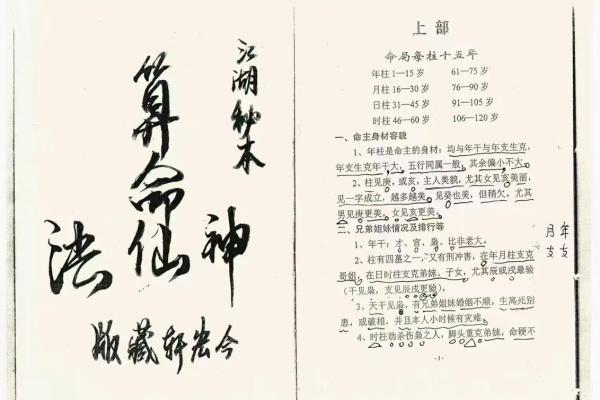 江湖秘本
算命仙
神法
今宏轩藏版
上部
命局每柱十五年
年柱1—15岁 61—75岁
月柱16—30岁 76—90岁
日柱31—45岁 91—105岁
时柱46—60岁 106—120岁
一、命主身材容貌
1、年柱是命主的身材：均与年干与年支生克，
年支生克年干大，五行同属一般，其余偏小不大。
2、柱见庚，或亥，主人美貌，尤其女见亥美丽，
见一字成立，越多越美。见癸也美，但稍欠，尤其
男见庚更美，女见亥更美。
二、兄弟姐妹情况及排行等
1、年干：才、官、枭、比非老大，
2、柱有四墓之一，又有刑冲害，在年月柱支克
哥姐，在日时柱支克弟妹、子女，尤其辰或戌最验
（干见枭，支见辰戌更验）。
3、天干见枭，有兄弟姐妹婚姻不顺，生离死别
患，或破相，并且本人小时候有灾难。
4、时柱劫杀伤枭之人，脚头重克弟妹，命硬不
年支
月支
-1-